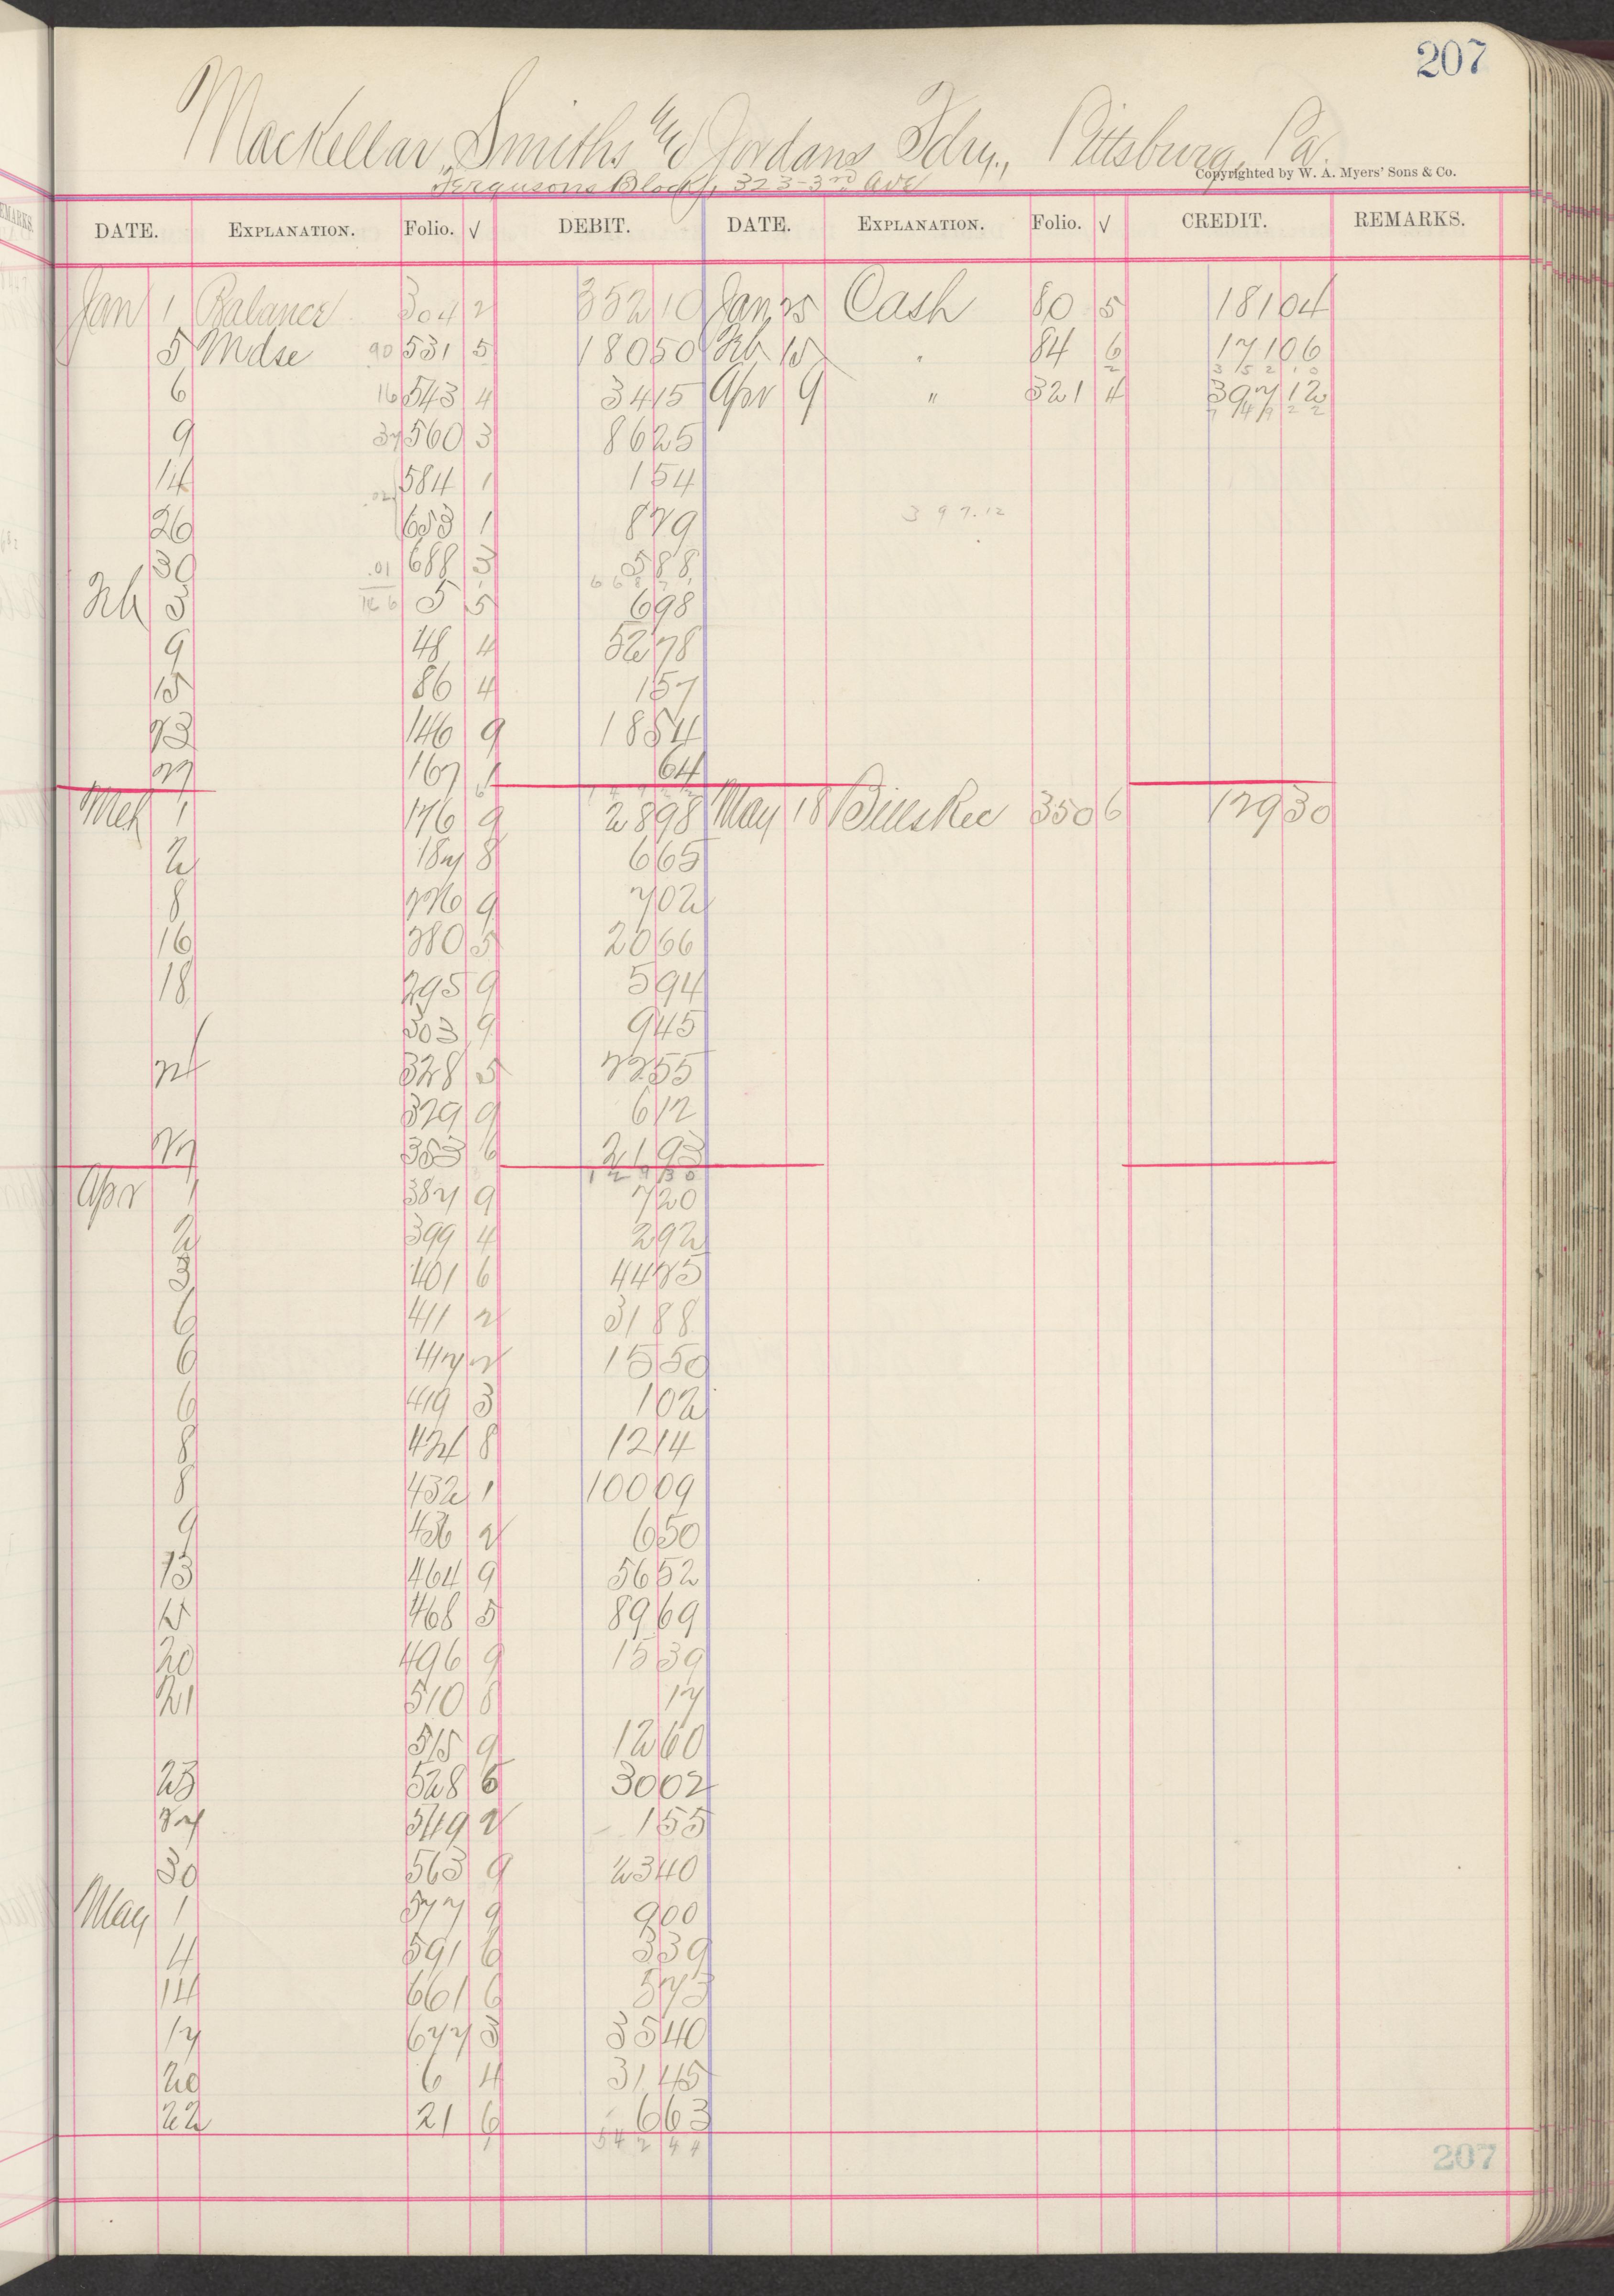 207
Mackellar, Smiths & Jordans Fdry., Pittsburg, Pa.
Fergusons Block, 323-3rd Ave
Copyrighted by W. A. Myers' Sons & Co.
DATE. EXPLANATION. Folio. √ DEBIT. DATE. EXPLANATION. Folio. √ CREDIT. REMARKS.
Jan 1 Balance 304 2 352 10 Jan 25 Cash 80 5 181 04
5 Mdse 90 531 5 180 50 Feb 15 " 84 6 171 06
3 5 2 1 0
6 16 543 4 34 15 Apr 9 " 321 4 397 12
7 4 9 2 2
9 37 560 3 86 25
14 584 1 1 54
.02
26 653 1 8 79 397.12
30 .01 688 3 5 88
Feb 5 5 5 6 98
9 48 4 52 78
15 86 4 1 57
23 146 9 18 54
27 167 1 64
Mch 1 176 9 28 98 May 18 Bills Rec 350 6 129 30
2 187 8 6 65
8 226 9 7 02
16 280 5 20 66
18 295 9 5 94
303 9 9 45
24 328 5 22 55
329 9 6 12
27 353 6 21 93
1 2 9 3 0
Apr 1 387 9 7 20
2 399 4 2 92
3 401 6 44 25
6 411 2 31 88
6 417 2 15 50
6 419 3 1 02
8 424 8 12 14
8 432 1 100 09
9 436 2 6 50
13 464 9 56 52
15 468 5 89 69
20 496 9 15 39
21 510 8 17
515 9 12 60
23 528 6 30 02
24 549 2 1 55
30 563 9 23 40
May 1 577 9 9 00
4 591 6 3 39
14 661 6 5 73
17 677 3 35 40
20 6 4 31 45
22 21 6 6 63
5 4 2 4 4
207